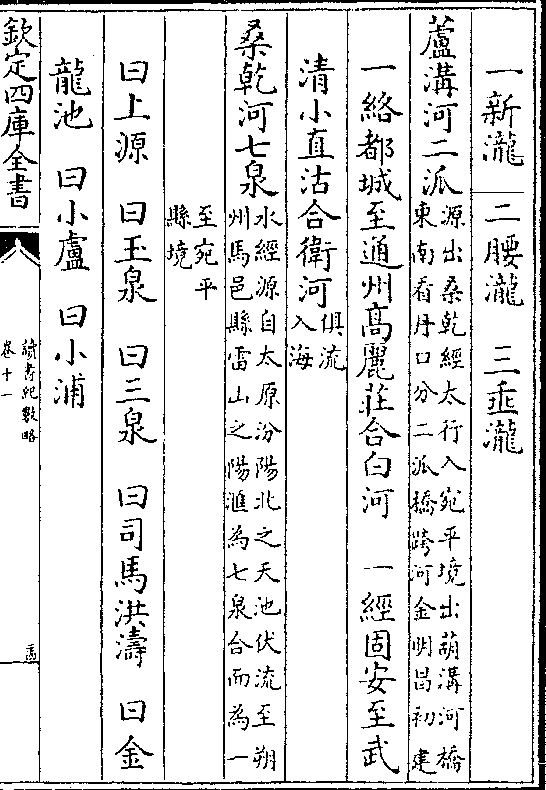 一新瀧 二腰瀧 三垂瀧
蘆溝河二派源出桑乾經太行入宛平境出葫溝河橋
東南看丹口分二派橋跨河金明昌初建
一絡都城至通州髙麗莊合白河 一經固安至武
清小直沽合衛河俱流
入海
桑乾河七泉水經源自太原汾陽北之天池伏流至朔
州馬邑縣雷山之陽滙為七泉合而為一
至宛平
縣境
曰上源 曰玉泉 曰三泉 曰司馬洪濤 曰金
龍池 曰小盧 曰小浦
欽定四庫全書
讀書紀數略
卷十一